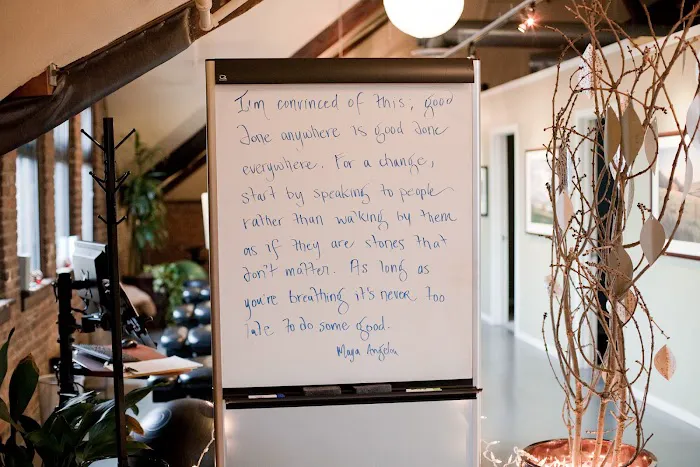 I'm convinced of this; good
done anywhere is good done
everywhere. For a change,
start by speaking to people
rather than walking by them
as if they are stones that
don't matter. As long as
you're breathing it's never too
late to do some good.
Maya Angelou